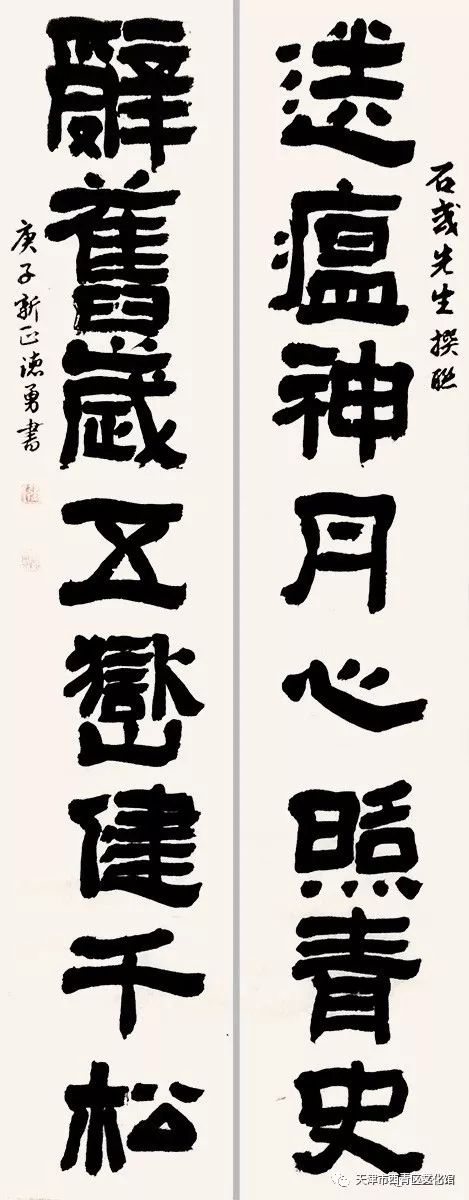 石或先生撰联
送瘟神丹心照青史
辭舊歲五嶽健千松
庚子新正德勇書
天津市西青区文化馆